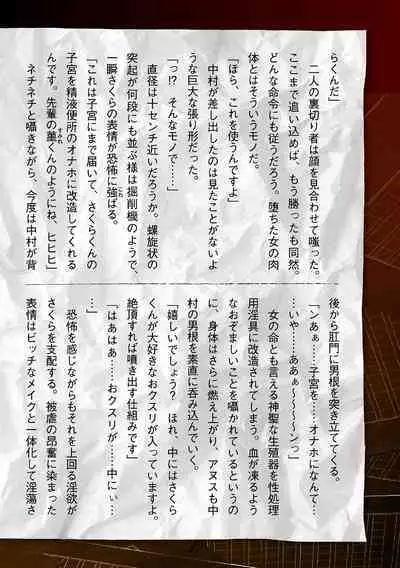 らくんだ」
二人の裏切り者は顔を見合わせて嗤った。
ここまで追い込めば、もう勝ったも同然。
どんな命令にも従うだろう。堕ちた女の肉
体とはそういうモノだ。
「ほら、これを使うんですよ」
中村が差し出したのは見たことがないよ
うな巨大な張り形だった。
「っ!?　そんなモノで……」
直径は十センチ近いだろうか。螺旋状の
突起が何段にも並ぶ様は掘削機のようで、
一瞬さくらの表情が恐怖に強ばる。
「これは子宮にまで届いて、さくらくんの
子宮を精液便所のオナホに改造してくれる
んです。先輩の菫くんのようにね、ヒヒヒ」
ネチネチと囁きながら、今度は中村が背
後から肛門に男根を突き立ててくる。
「ンあぁ……子宮を……オナホになんて…
……いや……ああぁ～～～～ンっ」
女の命とも言える神聖な生殖器を性処理
用淫具に改造されてしまう。血が凍るよう
なおぞましいことを囁かれているというの
に、身体はさらに燃え上がり、アヌスも中
村の男根を素直に呑み込んでいく。
「嬉しいでしょう?　ほれ、中にはさくら
くんが大好きなおクスリが入っていますよ。
絶頂すれば噴き出す仕組みです」
「はあはあ……おクスリが……中にぃ…
…」
恐怖を感じながらもそれを上回る淫欲が
さくらを支配する。被虐の昂奮に染まった
表情はビッチなメイクと一体化して淫蕩さ